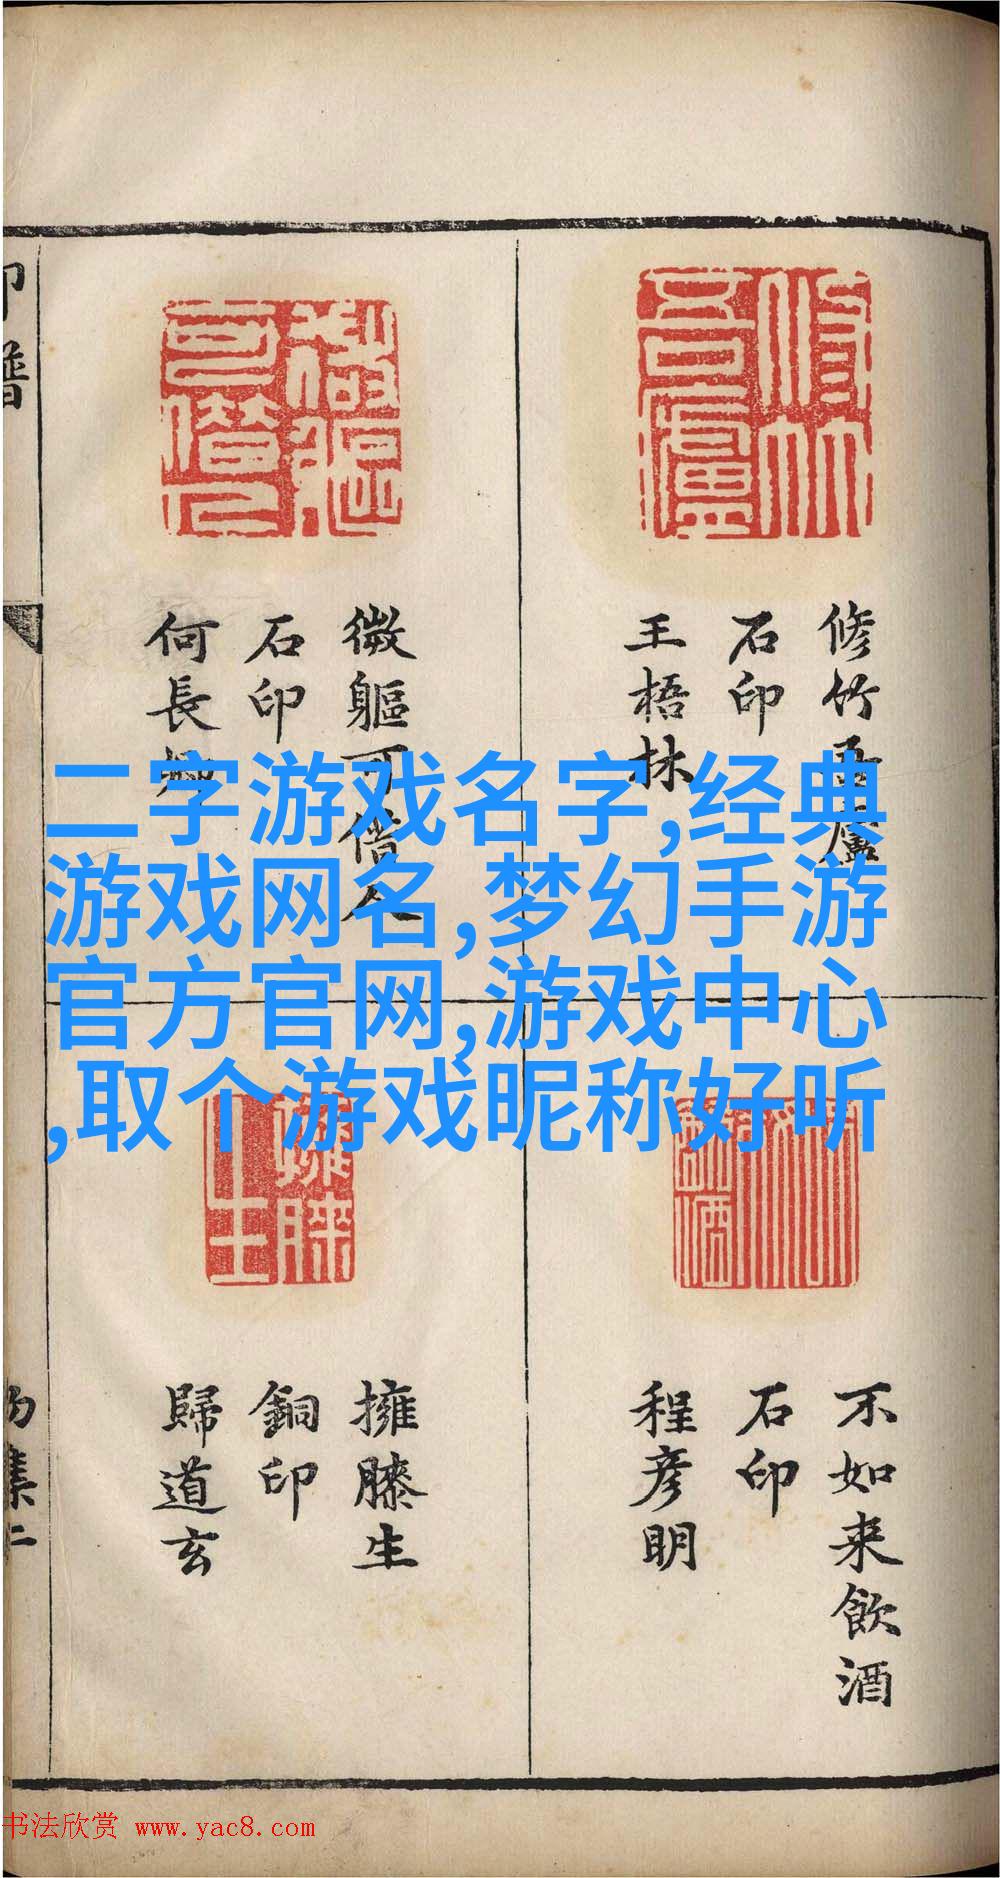 修竹吾廬
石印
王梧林
微軀可借人
石印
何長
二字游戏名字,经典
游戏网名,梦幻手游
官方官网,游戏中心
,取个游戏昵称好听
不如来飲酒
石印
程彦明
擁膝生
銅印
歸道玄
印譜
集二
书法欣赏 www.yac8.com